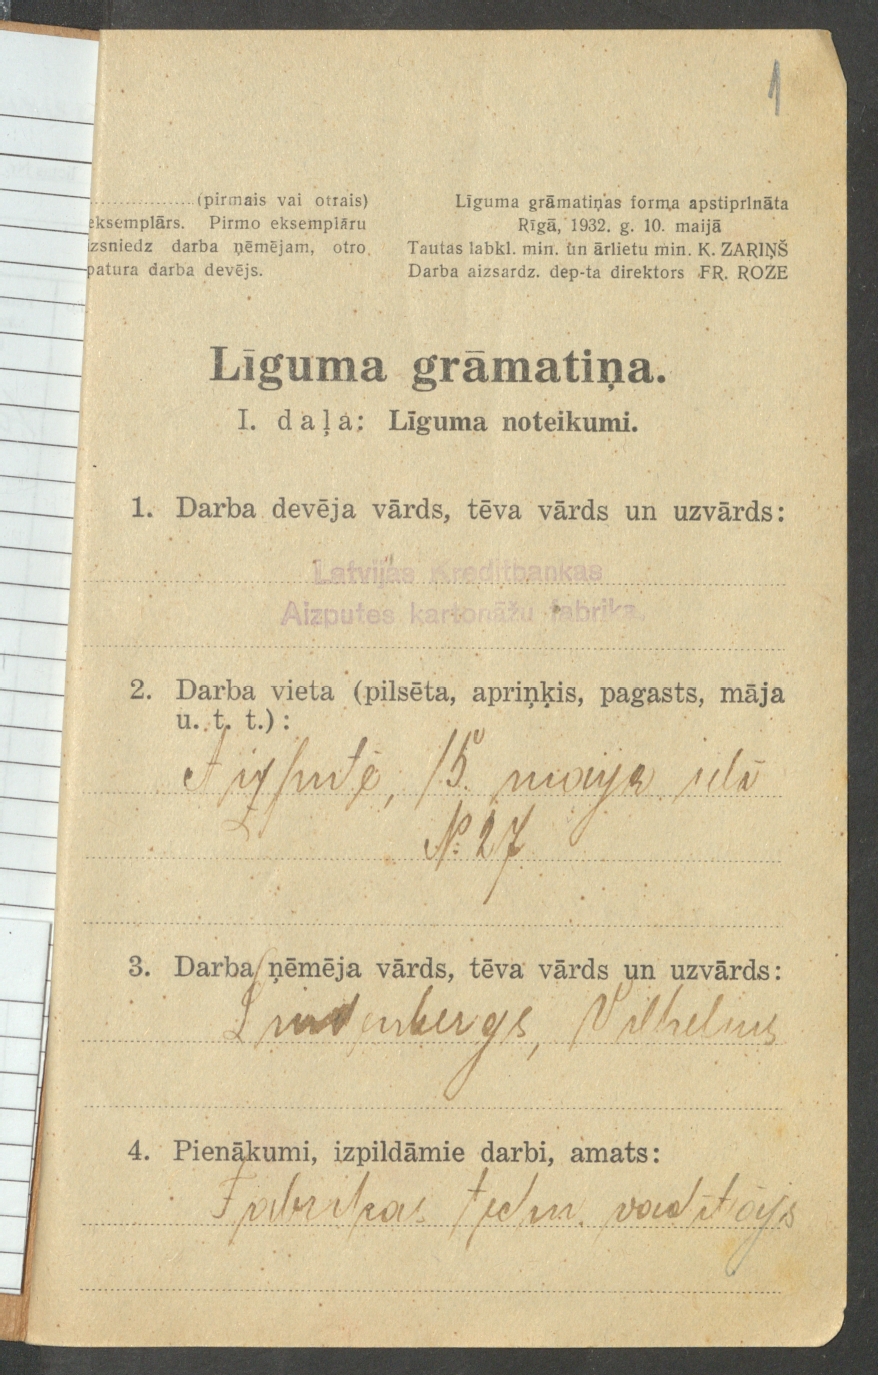 1
(pirmais vai otrais)
eksemplārs. Pirmo eksemplāru
izsniedz darba ņēmējam, otro
patura darba devējs.
Līguma grāmatiņas forma apstiprināta
Rīgā, 1932. g. 10. maijā
Tautas labkl. min. un ārlietu min. K. ZARIŅŠ
Darba aizsardz. dep-ta direktors FR. ROZE
Līguma grāmatiņa.
I. daļa: Līguma noteikumi.
1. Darba devēja vārds, tēva vārds un uzvārds:
Latvijas Kreditbankas
Aizputes kartonāžu fabrika.
2. Darba vieta (pilsēta, apriņķis, pagasts, māja
u. t. t.):
Aizputē, 15. maija ielā
№ 27
3. Darba ņēmēja vārds, tēva vārds un uzvārds:
Lindenbergs, Vilhelms
4. Pienākumi, izpildāmie darbi, amats:
Fabrikas techn. vadītājs